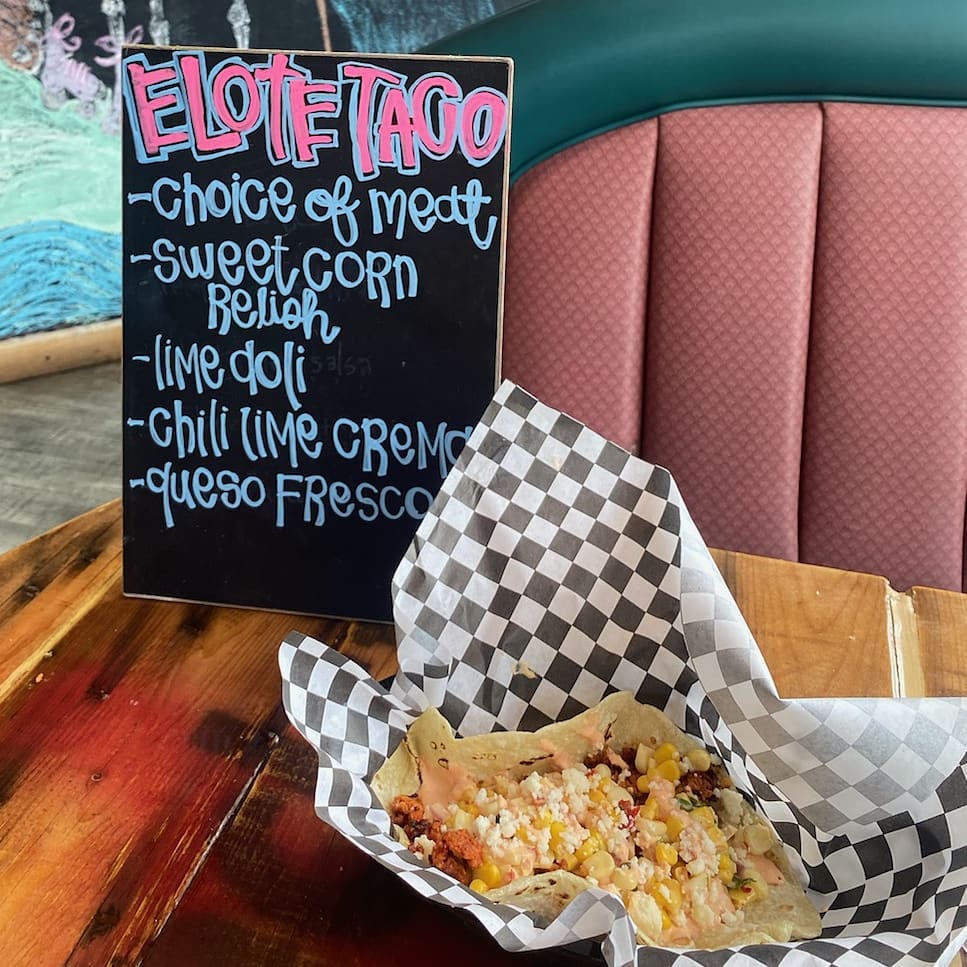 ELOTE TACO
-choice of meat
-sweet corn
Relish
-lime doli salsa
-chili lime crema
-queso fresco